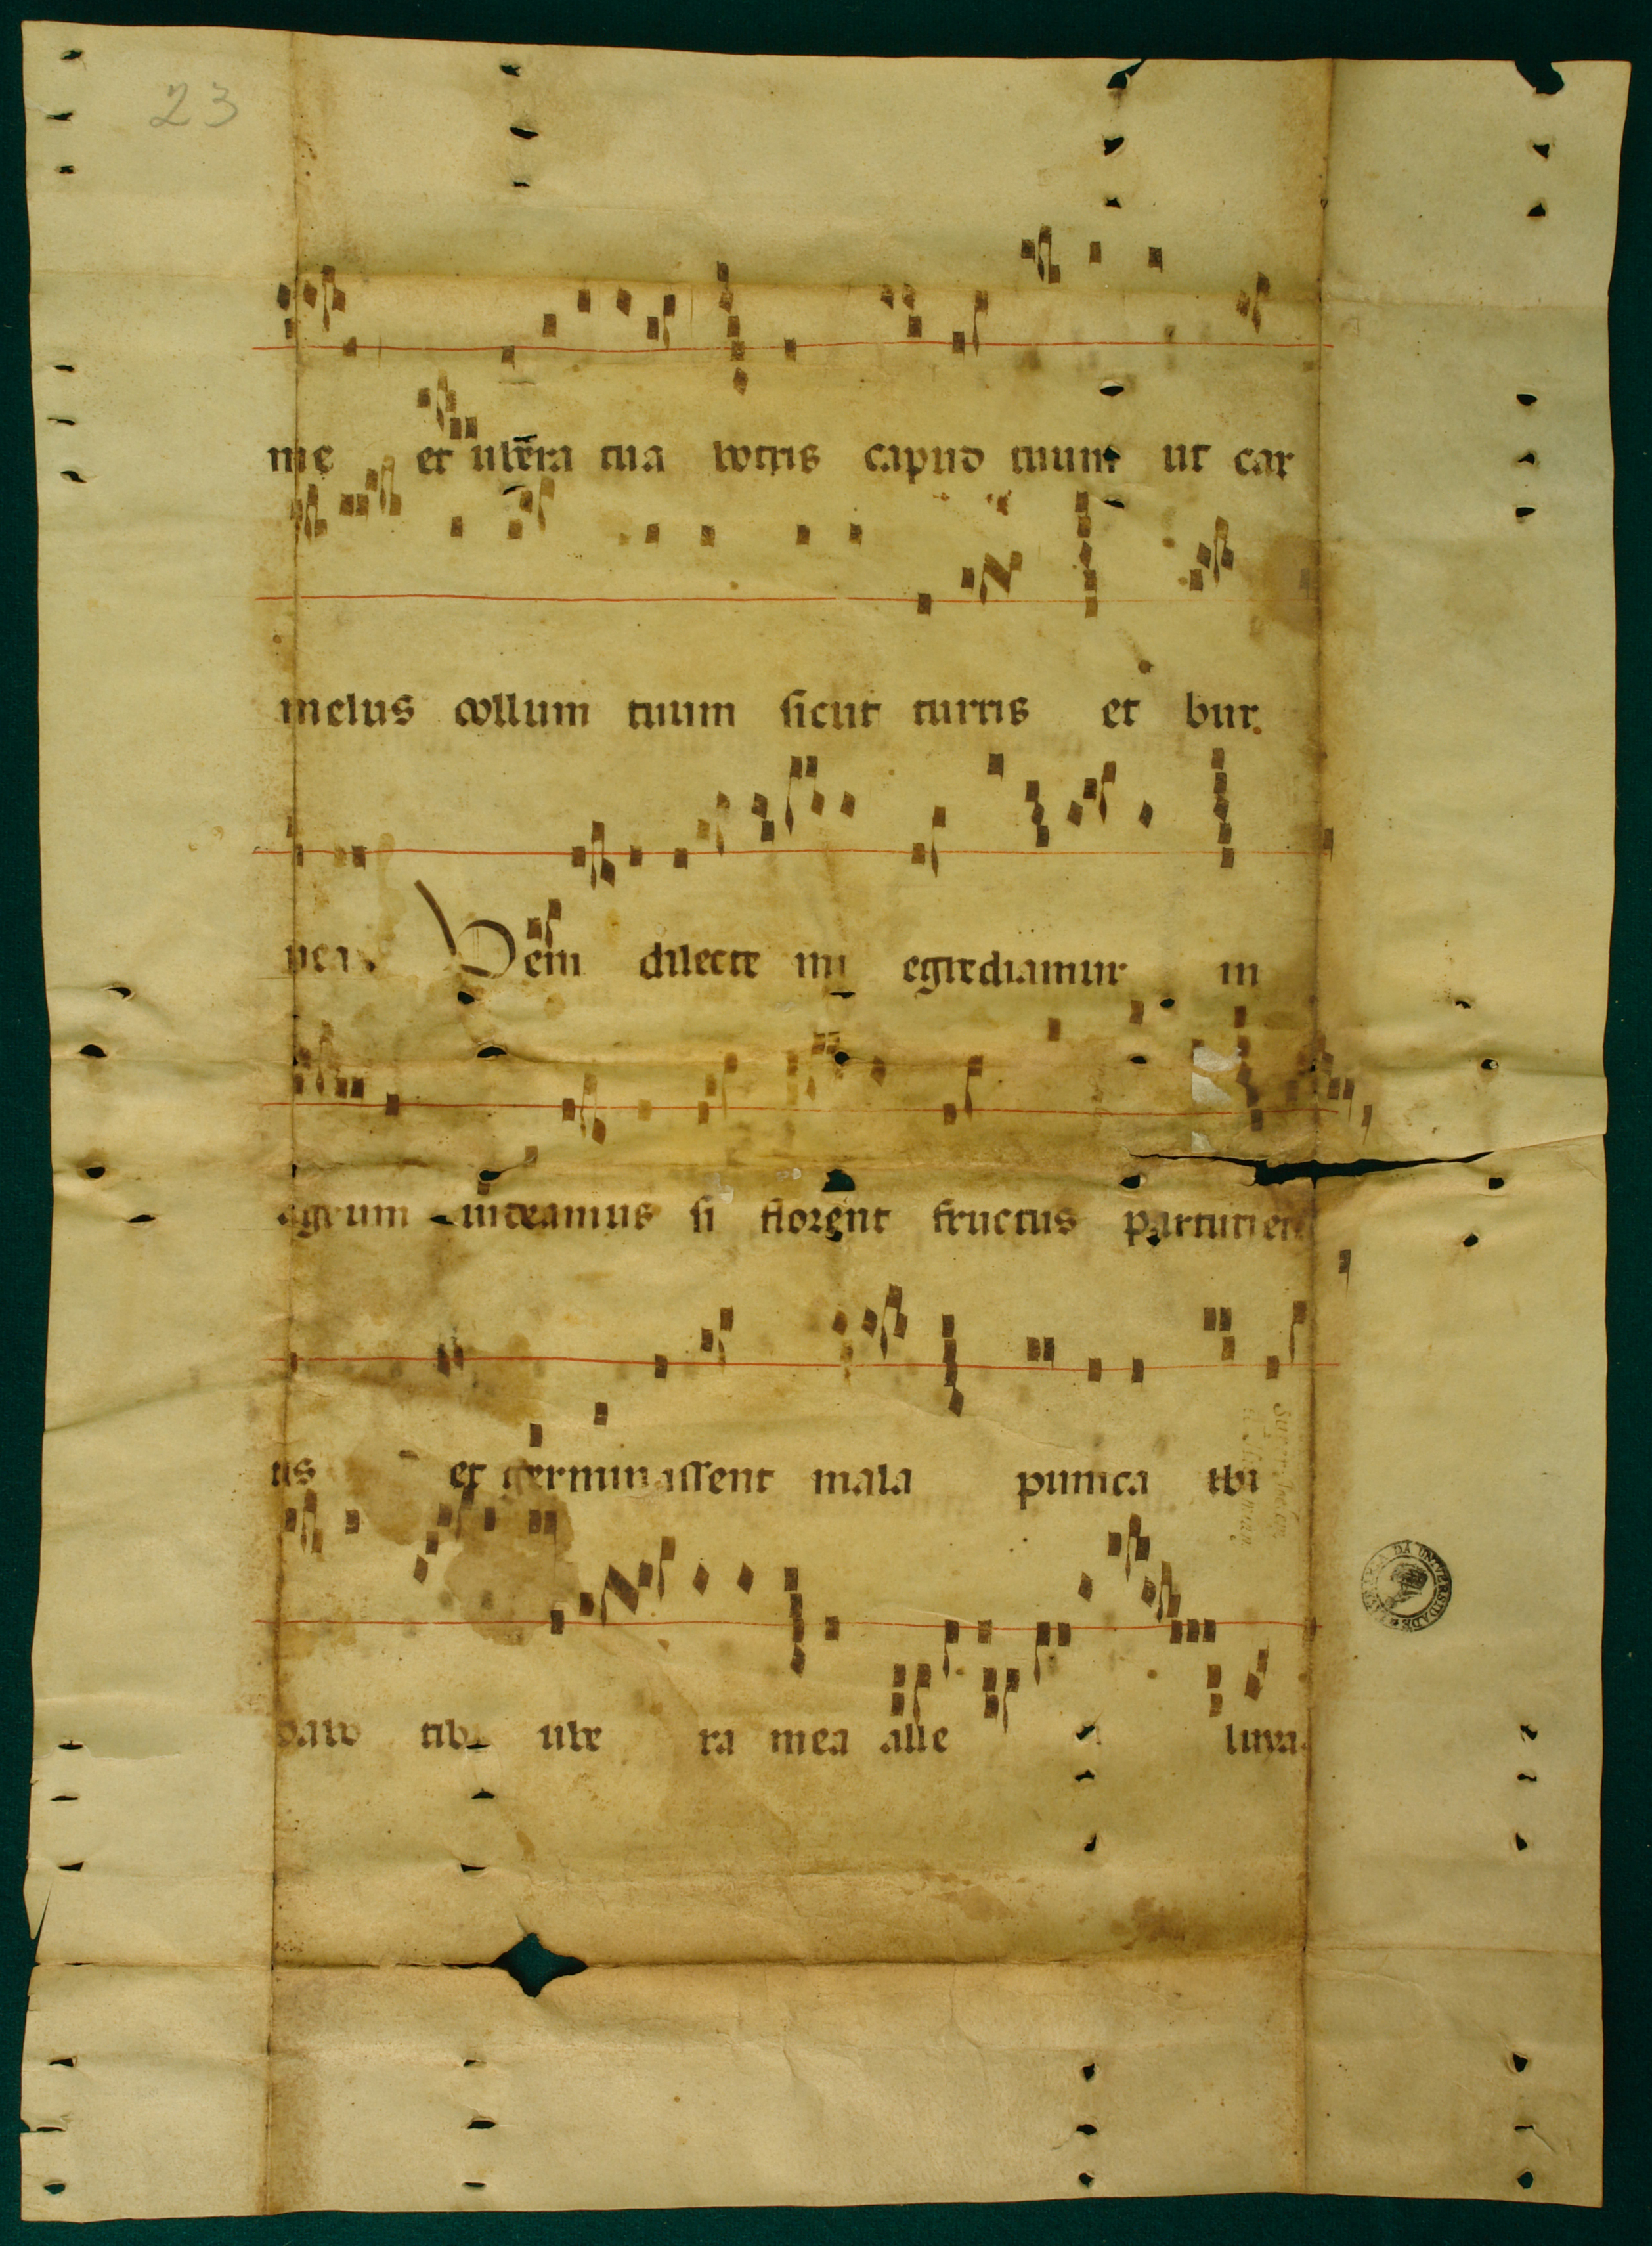 23
me et ubera tua botris capud tuum ut car
melus collum tuum sicut turris et bur
nea. Veni dilecte mi egrediamur in
agrum uideamus si florent fructus parturien
tis et germinassent mala punica ibi
dabo tibi ube ra mea alle luya